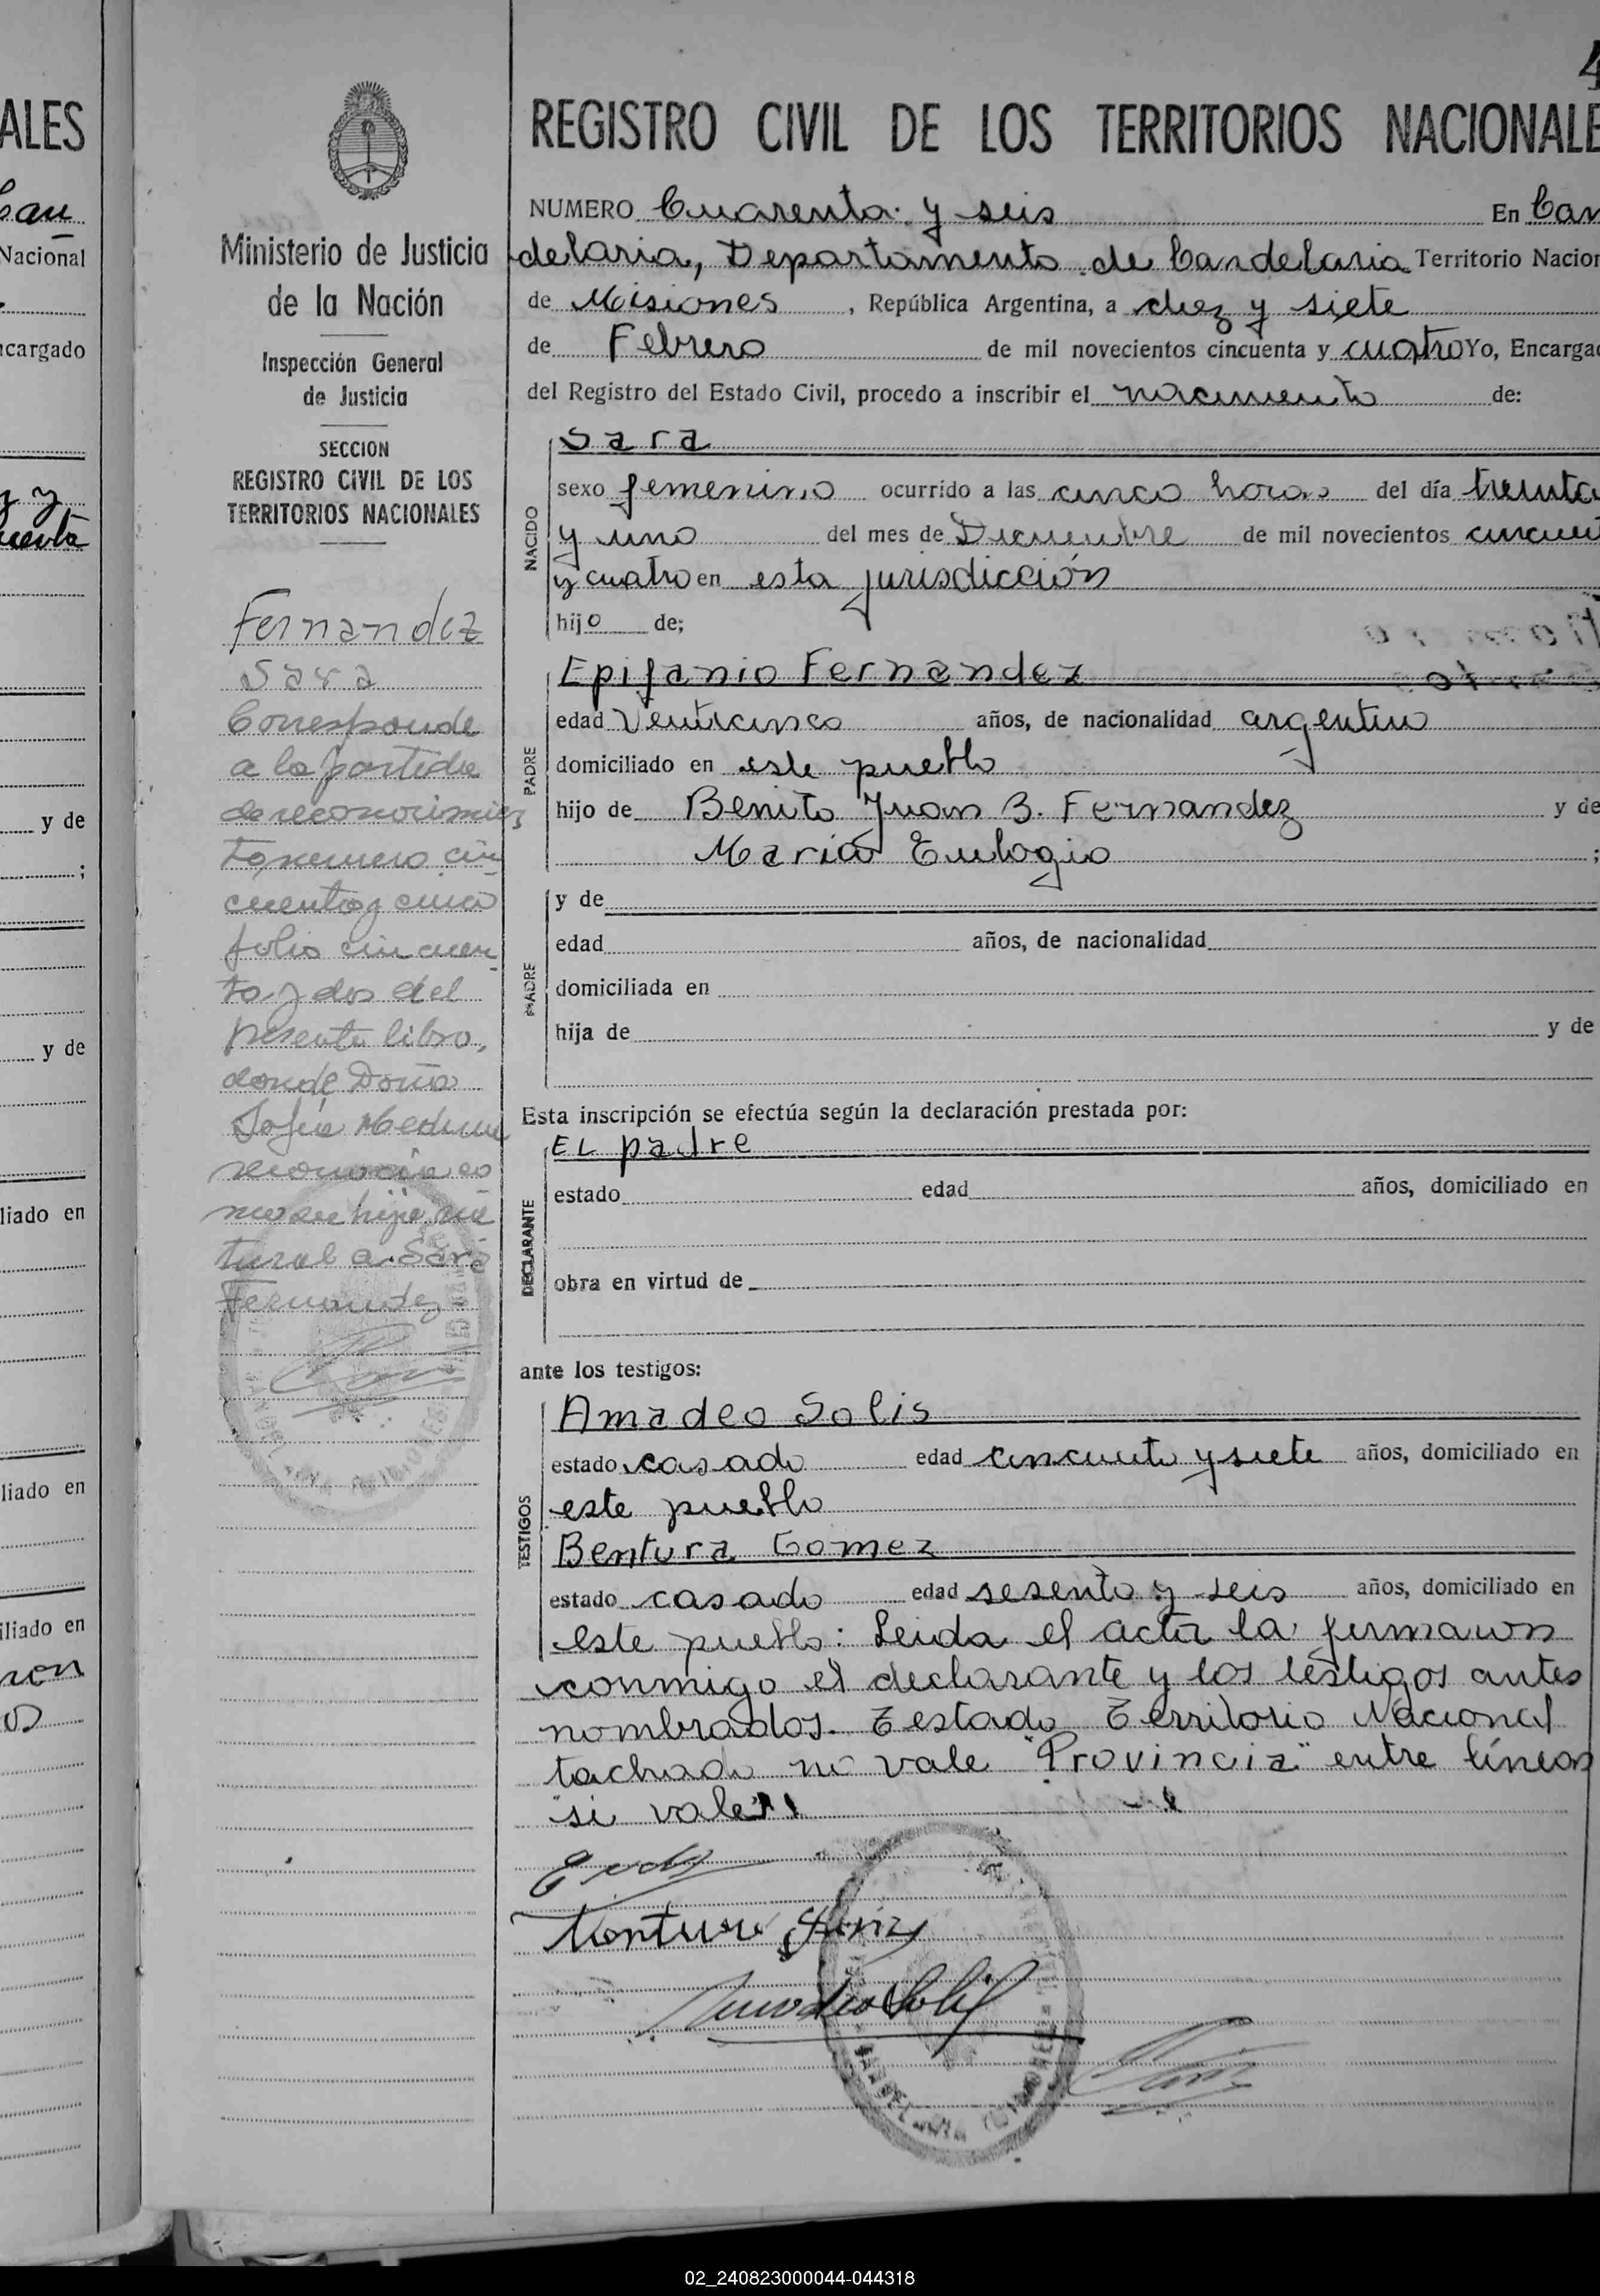 4
ALES
Can
Nacional
ncargado
y
y de
;
y de
liado en
liado en
iliado en
ron
Ministerio de Justicia
de la Nación
Inspección General
de Justicia
SECCION
REGISTRO CIVIL DE LOS
TERRITORIOS NACIONALES
Fernandez
Sara
Corresponde
a la partida
de reconocimien
to numero cin
cuenta y cinco
folio cincuen
ta y dos del
presente libro,
donde Doña
Sofia Medina
reconocia co
mo su hija na
tural a Sara
Fernandez
REGISTRO CIVIL DE LOS TERRITORIOS NACIONALE
NUMERO Cuarenta y seis En Can
delaria, Departamento de Candelaria Territorio Nacion
de Misiones , República Argentina, a diez y siete
de Febrero de mil novecientos cincuenta y cuatro Yo, Encarga
del Registro del Estado Civil, procedo a inscribir el nacimiento de:
NACIDO
Sara
sexo femenino ocurrido a las cinco horas del día treinta
y uno del mes de Diciembre de mil novecientos cincuen
y cuatro en esta jurisdicción
hijo de;
PADRE
Epifanio Fernandez
edad Veinticinco años, de nacionalidad argentino
domiciliado en este pueblo
hijo de Benito Juan B. Fernandez y de
Maria Eulogio ;
MADRE
y de
edad años, de nacionalidad
domiciliada en
hija de y de
Esta inscripción se efectúa según la declaración prestada por:
DECLARANTE
EL padre
estado edad años, domiciliado en
obra en virtud de
ante los testigos:
TESTIGOS
Amadeo Solis
estado casado edad cincuenta y siete años, domiciliado en
este pueblo
Bentura Gomez
estado casado edad sesenta y seis años, domiciliado en
este pueblo: Leida el acta la firmaron
conmigo el declarante y los testigos antes
nombrados. Testado Territorio Nacional
tachado no vale "Provincia" entre líneas
"si vale"
Amadeo Solis
02_240823000044-044318